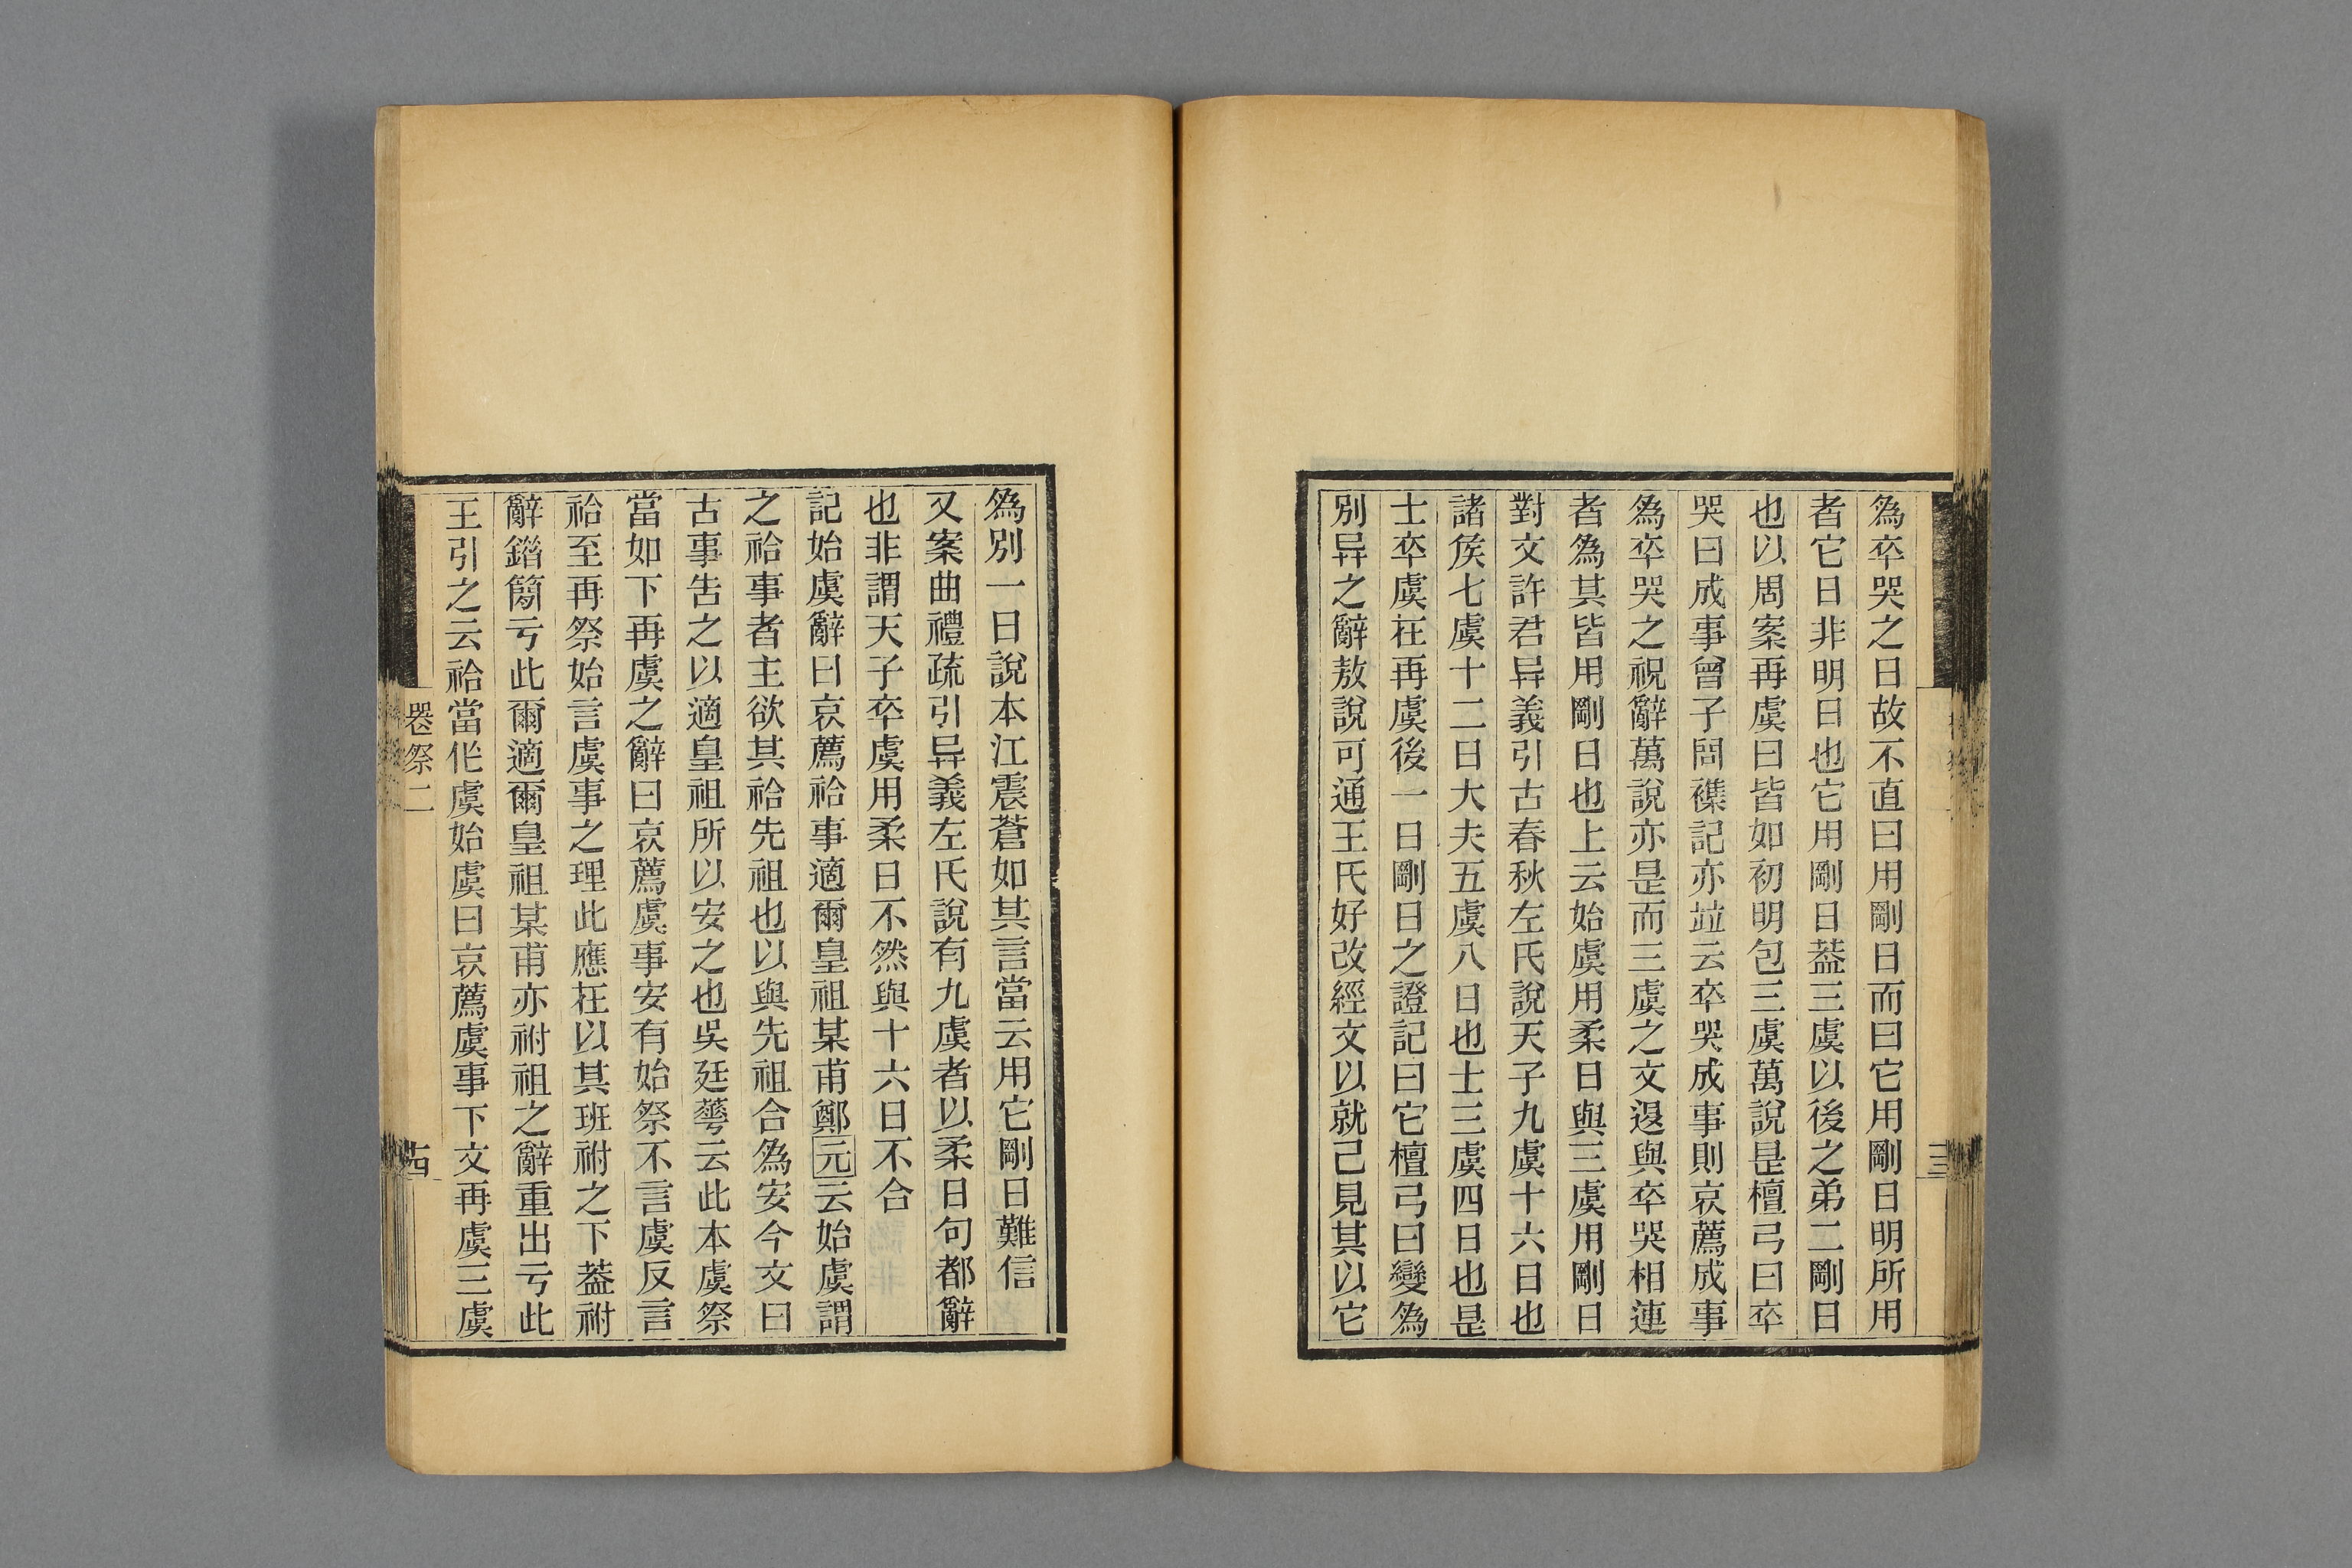 為卒哭之日故不直曰用剛日而曰它用剛日明所用
者它日非明日也它用剛日葢三虞以後之弟二剛日
也以周案再虞曰皆如初明包三虞萬說是檀弓曰卒
哭曰成事曾子問襍記亦竝云卒哭成事則哀薦成事
為卒哭之祝辭萬說亦是而三虞之文退與卒哭相連
者為其皆用剛日也上云始虞用柔日與三虞用剛日
對文許君异義引古春秋左氏說天子九虞十六日也
諸矦七虞十二日大夫五虞八日也士三虞四日也是
士卒虞在再虞後一日剛日之證記曰它檀弓曰變為
別异之辭敖說可通王氏好改經文以就己見其以它
為別一日說本江震蒼如其言當云用它剛日難信
又案曲禮疏引异義左氏說有九虞者以柔日句都辭
也非謂天子卒虞用柔日不然與十六日不合
記始虞辭曰哀薦祫事適爾皇祖某甫鄭元云始虞謂
之祫事者主欲其祫先祖也以與先祖合為安今文曰
古事吿之以適皇祖所以安之也吳廷蕚云此本虞祭
當如下再虞之辭曰哀薦虞事安有始祭不言虞反言
祫至再祭始言虞事之理此應在以其班祔之下葢祔
辭鍇簡亏此爾適爾皇祖某甫亦祔祖之辭重出亏此
王引之云祫當作虞始虞曰哀薦虞事下文再虞三虞
祭二
十四